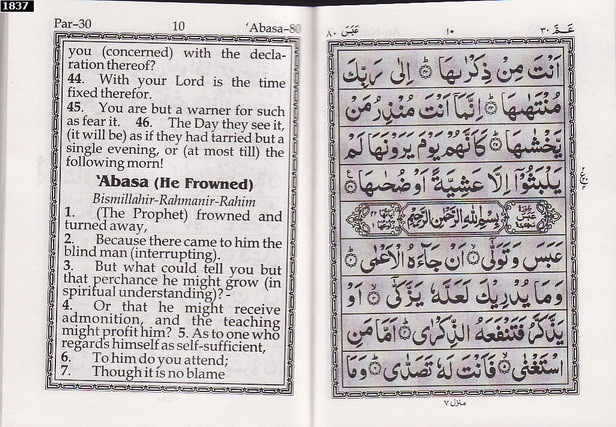 1837
Par-30 10 'Abasa-80
you (concerned) with the decla-
ration thereof?
44. With your Lord is the time
fixed therefor.
45. You are but a warner for such
as fear it. 46. The Day they see it,
(it will be) as if they had tarried but a
single evening, or (at most till) the
following morn!
'Abasa (He Frowned)
Bismillahir-Rahmanir-Rahim
1. (The Prophet) frowned and
turned away,
2. Because there came to him the
blind man (interrupting).
3. But what could tell you but
that perchance he might grow (in
spiritual understanding)?-
4. Or that he might receive
admonition, and the teaching
might profit him? 5. As to one who
regards himself as self-sufficient,
6. To him do you attend;
7. Though it is no blame
عَمَّ ٣٠ ١٠ عَبَسَ ٨٠
اَنْتَ مِنْ ذِكْرٰىهَا ۞ اِلٰى رَبِّكَ
مُنْتَهٰىهَا ۞ اِنَّمَآ اَنْتَ مُنْذِرُ مَنْ
يَّخْشٰىهَا ۞ كَاَنَّهُمْ يَوْمَ يَرَوْنَهَا لَمْ
يَلْبَثُوْٓا اِلَّا عَشِيَّةً اَوْ ضُحٰىهَا ۞
بِسْمِ اللهِ الرَّحْمٰنِ الرَّحِيْمِ
عَبَسَ وَتَوَلّٰٓى ۞ اَنْ جَآءَهُ الْاَعْمٰى ۞
وَمَا يُدْرِيْكَ لَعَلَّهٗ يَزَّكّٰٓى ۞ اَوْ
يَذَّكَّرُ فَتَنْفَعَهُ الذِّكْرٰى ۞ اَمَّا مَنِ
اسْتَغْنٰى ۞ فَاَنْتَ لَهٗ تَصَدّٰى ۞ وَمَا
منزل ٧